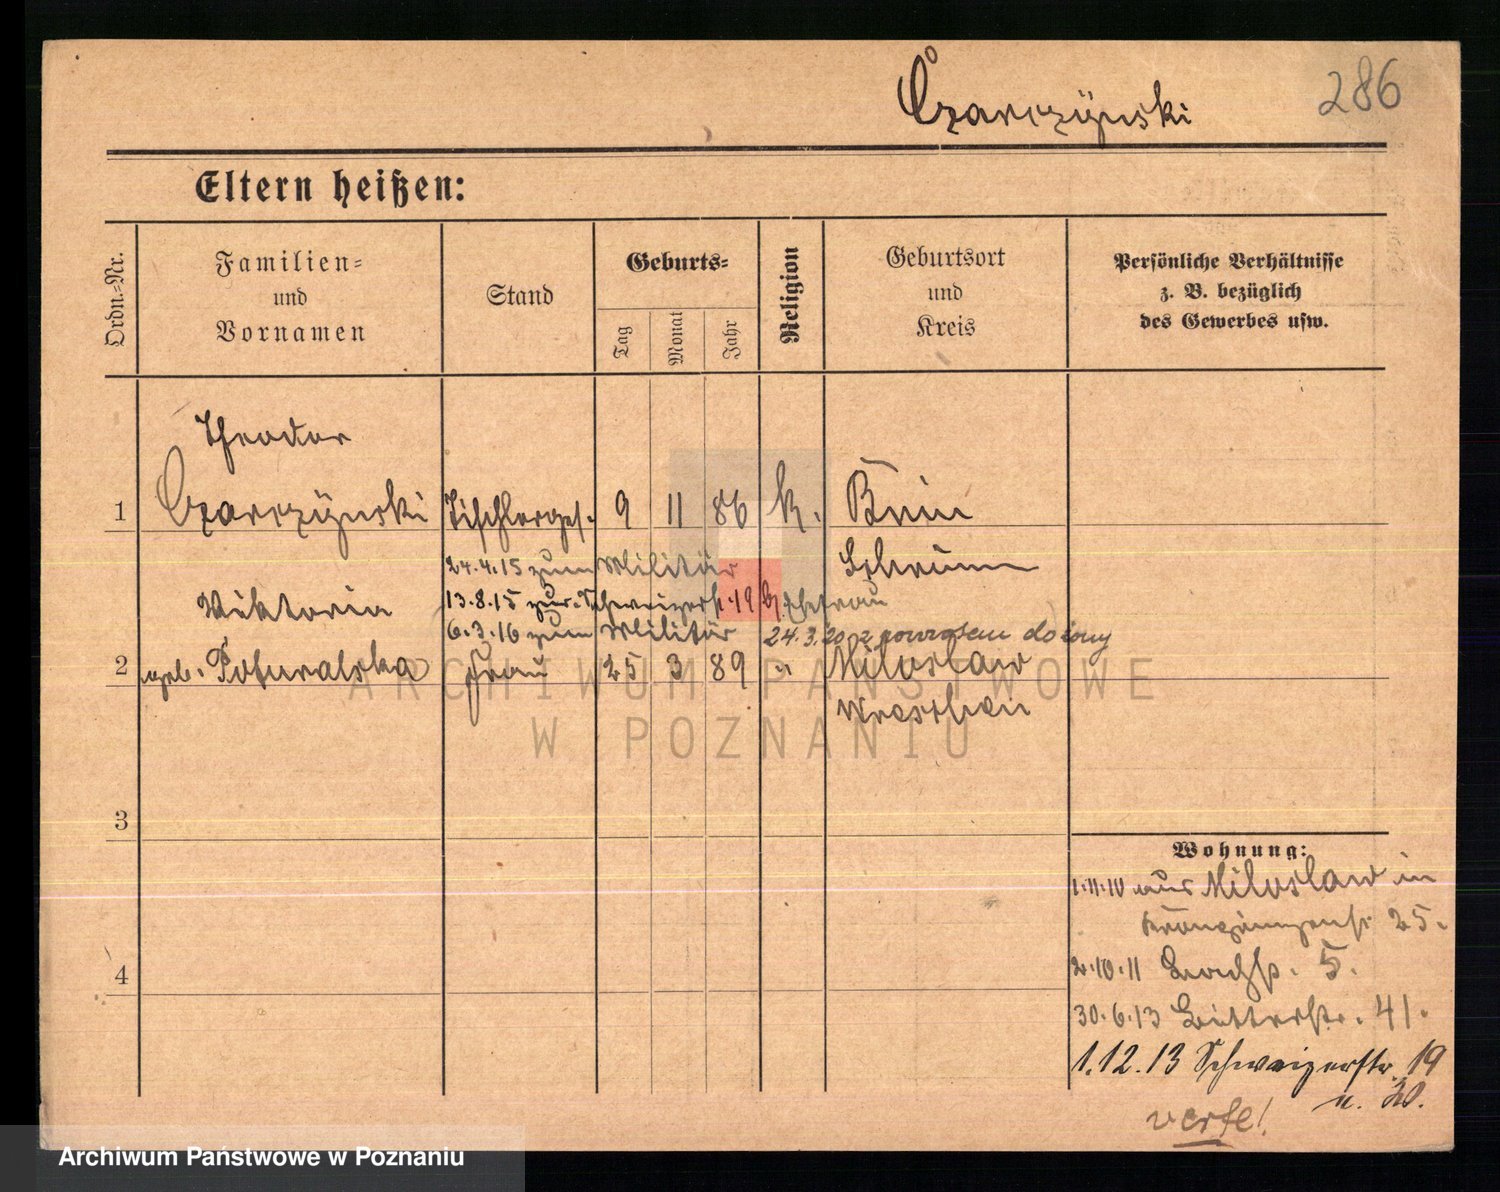 Czarczyński
286
Eltern heißen:
Ordn.-Nr.
Familien-
und
Vornamen
Stand
Geburts-
Tag
Monat
Jahr
Religion
Geburtsort
und
Kreis
Persönliche Verhältnisse
z. B. bezüglich
des Gewerbes usw.
Theodor
1 Czarczyński Tischlerges. 9 11 86 k. Bnin
24.4.15 zum Militär
Schrimm
Viktoria
13.8.15 zur Schweizerstr. 19 z. Ehefrau
6.3.16 zum Militär
24.3.20 z powrotem do żony
2 geb. Frau 25 3 89 " Miloslaw
Wreschen
3
4
Wohnung:
1.11.10 aus Miloslaw in
Kronprinzenstr. 25.
2.10.11 5.
30.6.13 41.
1.12.13 Schweizerstr. 19
u. 20.
verte!
ARCHIWUM PAŃSTWOWE
W POZNANIU
Archiwum Państwowe w Poznaniu